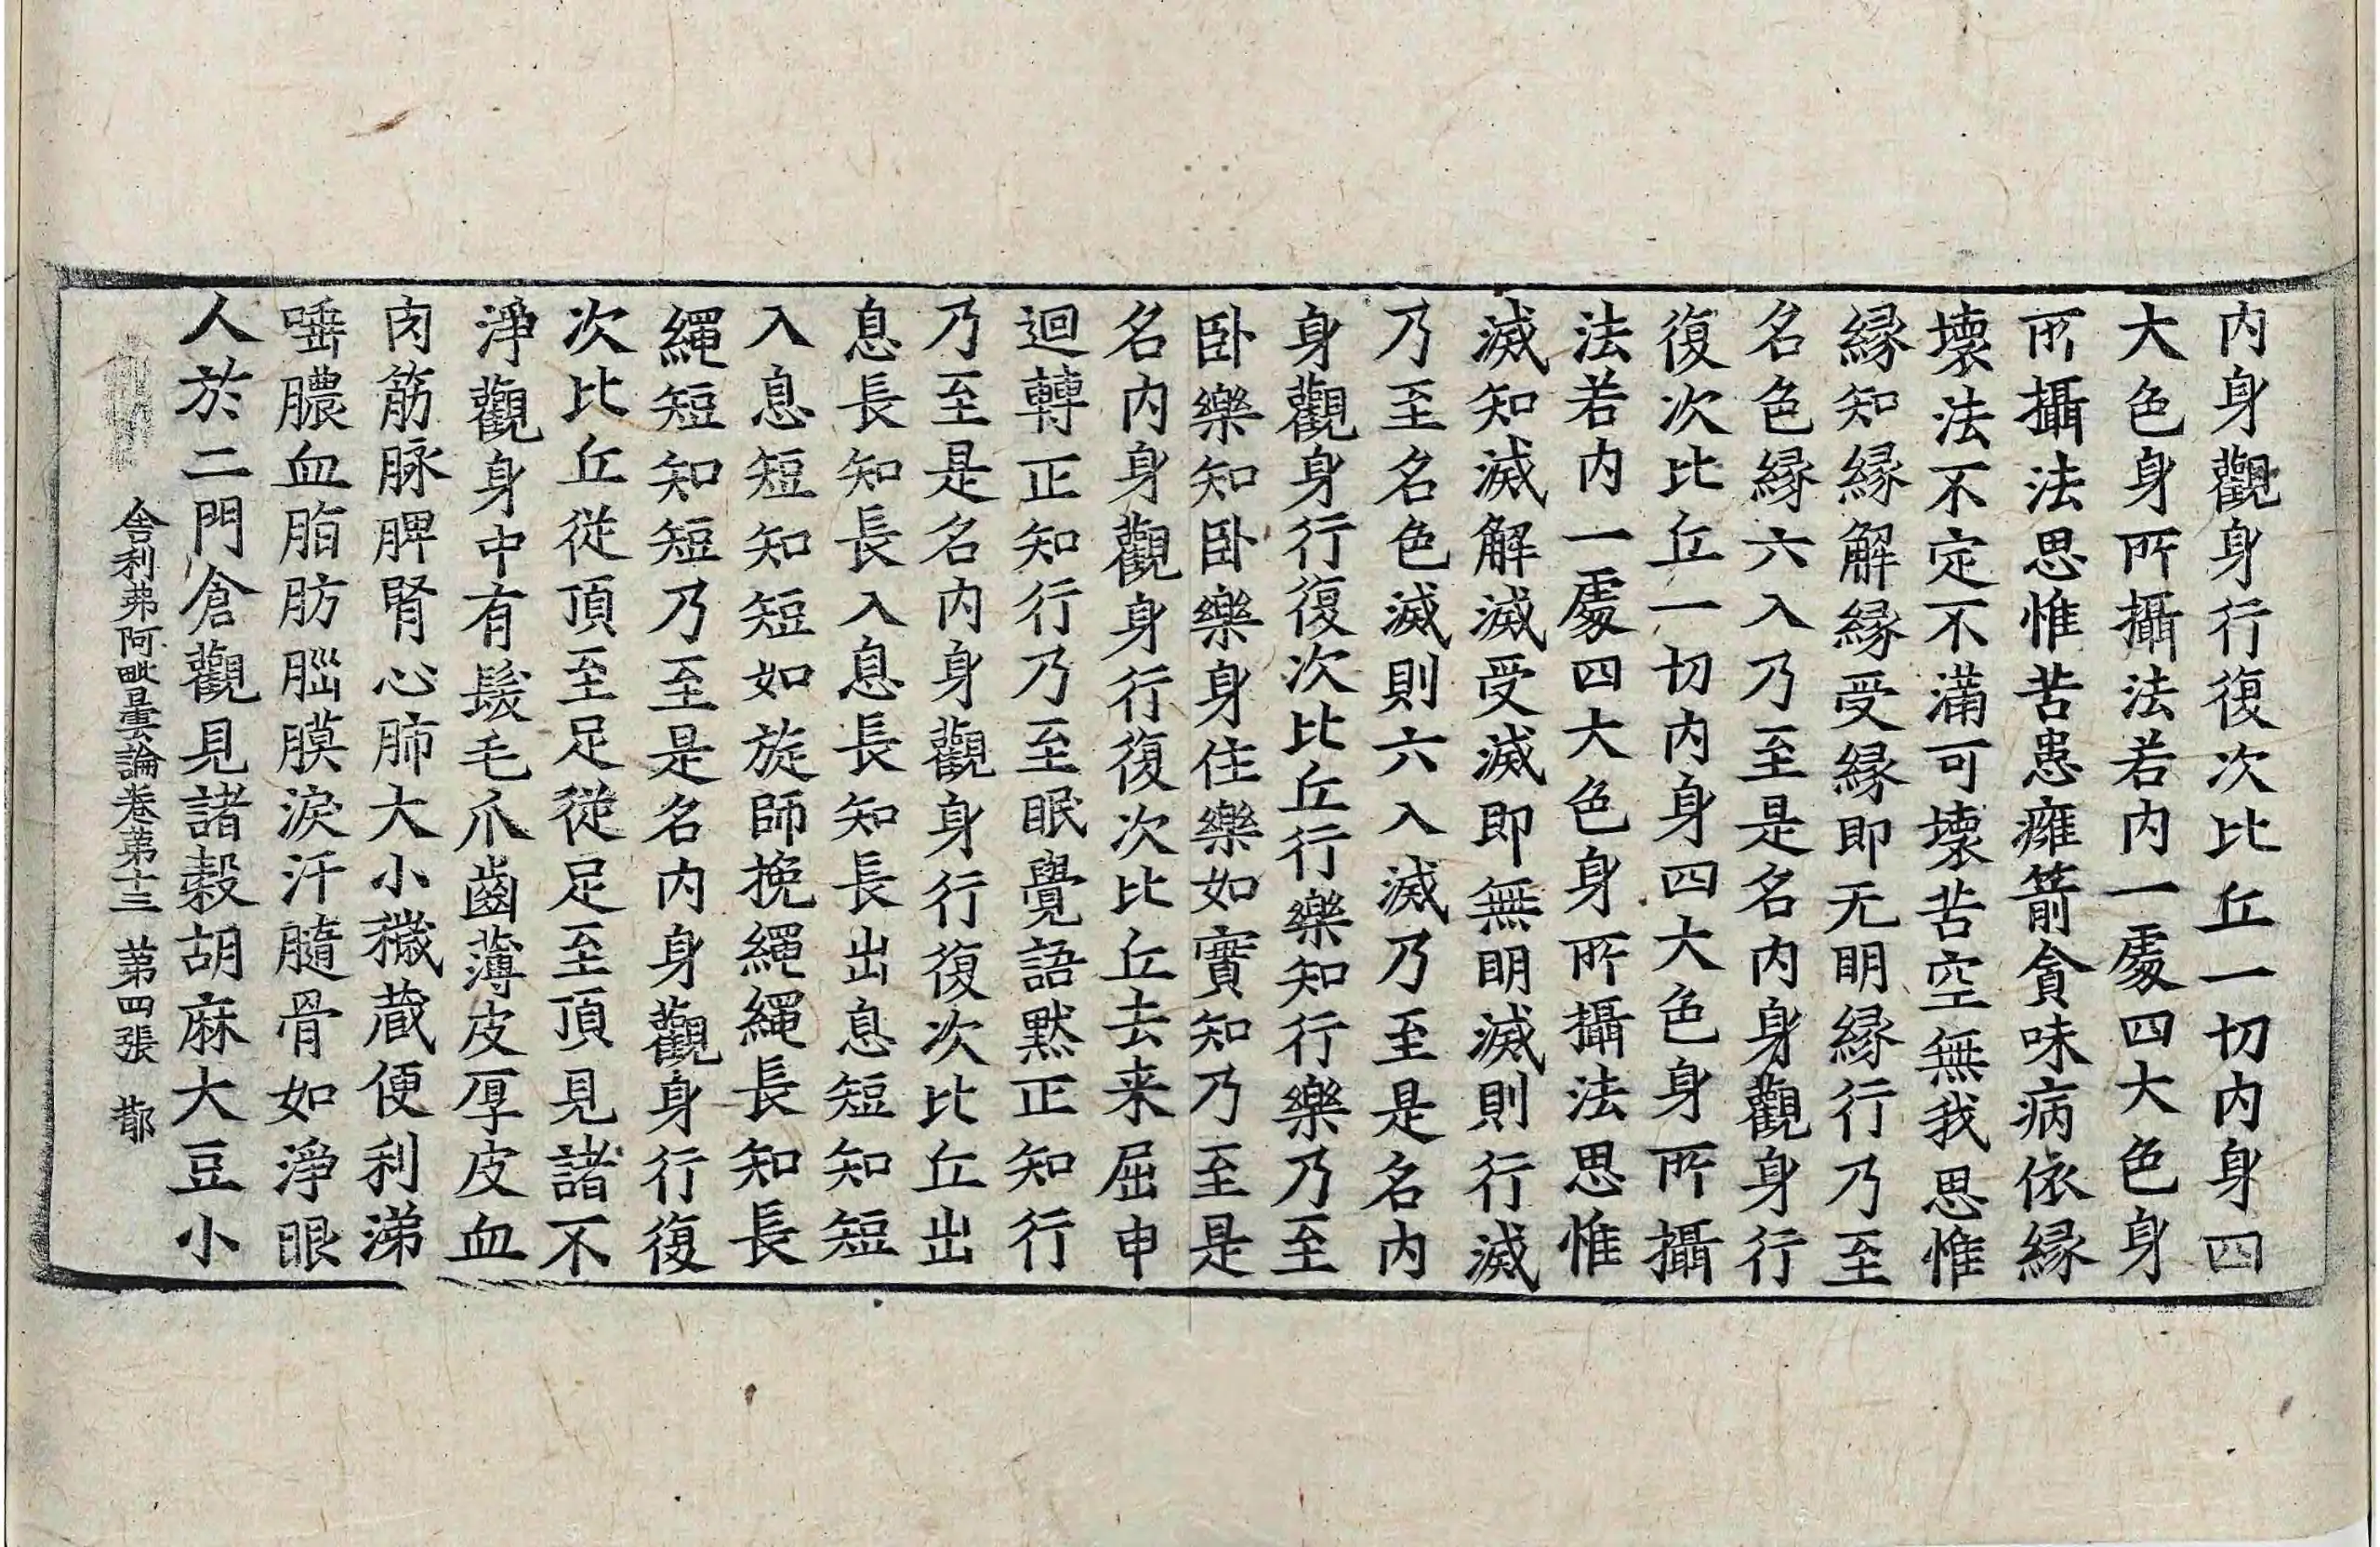 內身觀身行復次比丘一切內身四
大色身所攝法若內一處四大色身
所攝法思惟苦患癰箭貪味病依縁
壞法不定不滿可壞苦空無我思惟
縁知縁解縁受縁即无明縁行乃至
名色縁六入乃至是名內身觀身行
復次比丘一切內身四大色身所攝
法若內一處四大色身所攝法思惟
滅知滅解滅受滅即無明滅則行滅
乃至名色滅則六入滅乃至是名內
身觀身行復次比丘行樂知行樂乃至
卧樂知卧樂身住樂如實知乃至是
名內身觀身行復次比丘去来屈申
迴轉正知行乃至眠覺語黙正知行
乃至是名內身觀身行復次比丘出
息長知長入息長知長出息短知短
入息短知短如旋師挽繩繩長知長
繩短知短乃至是名內身觀身行復
次比丘從頂至足從足至頂見諸不
淨觀身中有髮毛爪齒薄皮厚皮血
肉筋脉脾腎心肺大小穢蔵便利涕
唾膿血脂肪腦膜淚汗髓骨如淨眼
人於二門倉觀見諸穀胡麻大豆小
舎利弗阿毗曇論卷第十三 第四張 鄁